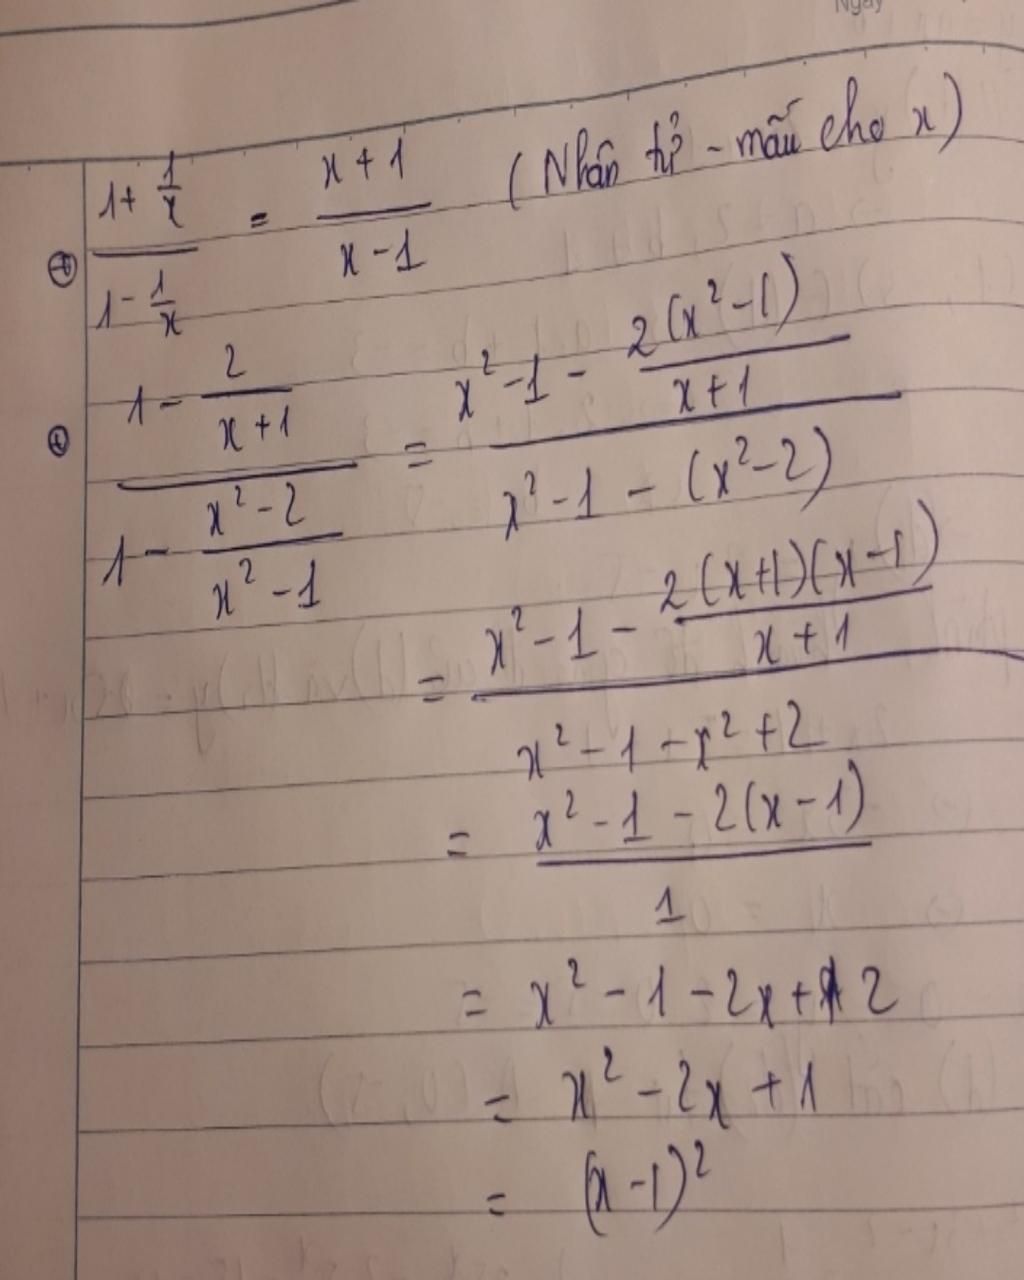 Ngày
⊕ (1 + 1/x)/(1 - 1/x) = (x + 1)/(x - 1) (Nhân tử - mẫu cho x)
⊕ (1 - 2/(x+1))/(1 - (x² - 2)/(x² - 1)) = (x² - 1 - 2(x² - 1)/(x+1))/(x² - 1 - (x² - 2))
= (x² - 1 - 2(x+1)(x-1)/(x+1))/(x² - 1 - x² + 2)
= (x² - 1 - 2(x - 1))/1
= x² - 1 - 2x + 2
= x² - 2x + 1
= (x - 1)²